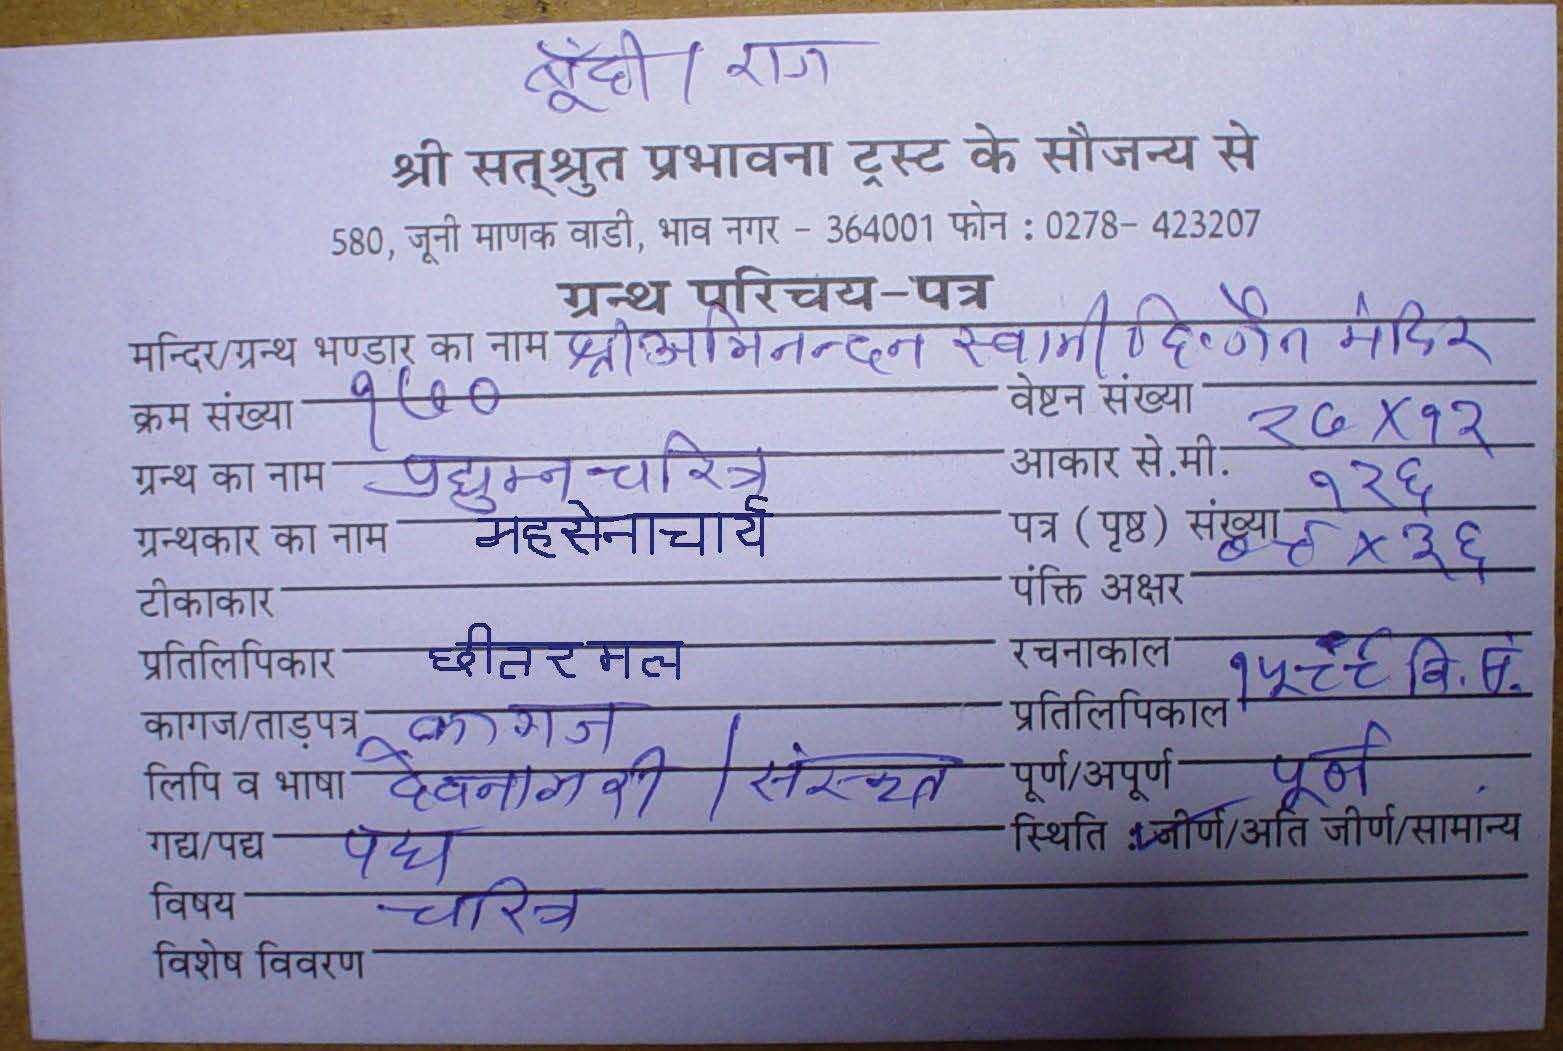 बूँदी / राज
श्री सत्श्रुत प्रभावना ट्रस्ट के सौजन्य से
580, जूनी माणक वाडी, भाव नगर – 364001 फोन : 0278– 423207
ग्रन्थ परिचय-पत्र
मन्दिर/ग्रन्थ भण्डार का नाम श्री अभिनन्दन स्वामी दि. जैन मंदिर
क्रम संख्या १७० वेष्टन संख्या
ग्रन्थ का नाम प्रद्युम्न चरित्र आकार से.मी. २७ X १२
ग्रन्थकार का नाम महसेनाचार्य पत्र (पृष्ठ) संख्या १२६
टीकाकार पंक्ति अक्षर ९ X ३६
प्रतिलिपिकार छीतरमल रचनाकाल
कागज/ताड़पत्र कागज प्रतिलिपिकाल वि. सं.
लिपि व भाषा देवनागरी / संस्कृत पूर्ण/अपूर्ण पूर्ण
गद्य/पद्य पद्य स्थिति : जीर्ण/अति जीर्ण/सामान्य
विषय चरित्र
विशेष विवरण